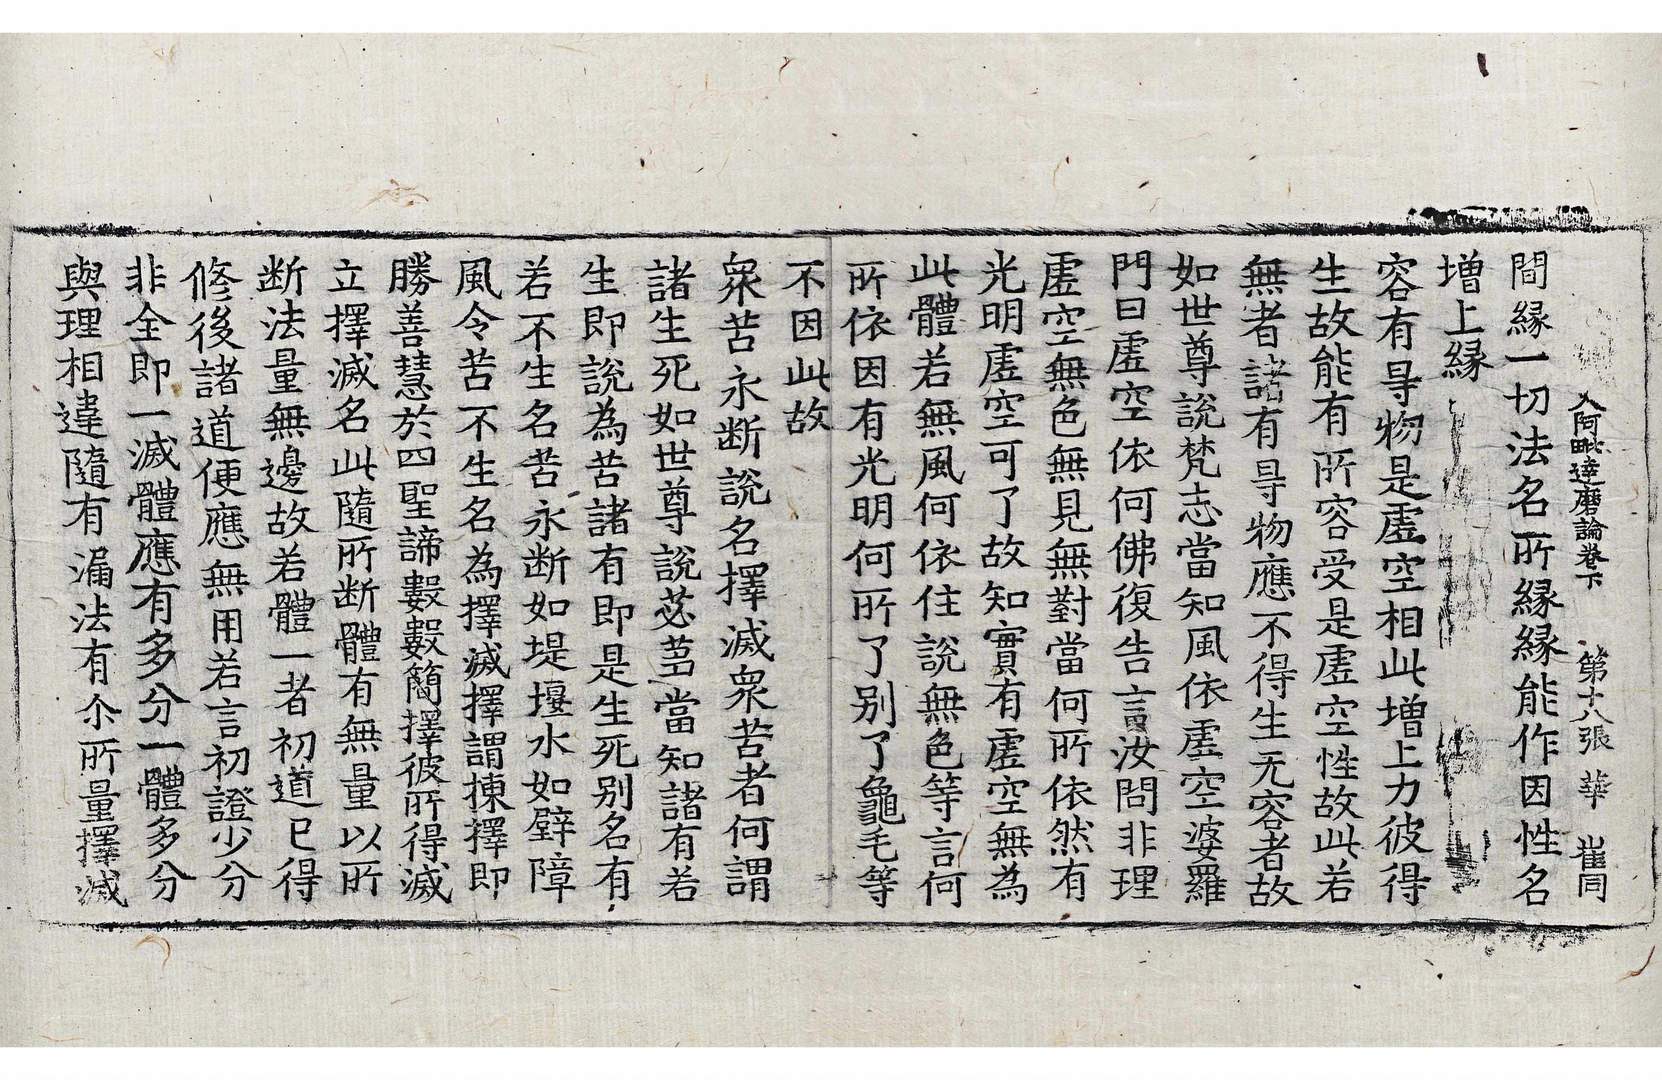 入阿毗達磨論卷下 第十八張 華 崔同
間縁一切法名所縁縁能作因性名
增上縁
容有㝵物是虛空相此增上力彼得
生故能有所容受是虛空性故此若
無者諸有㝵物應不得生无容者故
如世尊説梵志當知風依虛空婆羅
門曰虛空依何佛復告言汝問非理
虛空無色無見無對當何所依然有
光明虛空可了故知實有虛空無為
此體若無風何依住說無色等言何
所依因有光明何所了別了龜毛等
不因此故
衆苦永断説名擇滅衆苦者何謂
諸生死如世尊説苾蒭當知諸有若
生即説為苦諸有即是生死別名有
若不生名苦永断如堤堰水如壁障
風令苦不生名為擇滅擇謂揀擇即
勝善慧於四聖諦數數簡擇彼所得滅
立擇滅名此隨所断體有無量以所
断法量無邊故若體一者初道已得
修後諸道便應無用若言初證少分
非全即一滅體應有多分一體多分
與理相違隨有漏法有尒所量擇滅